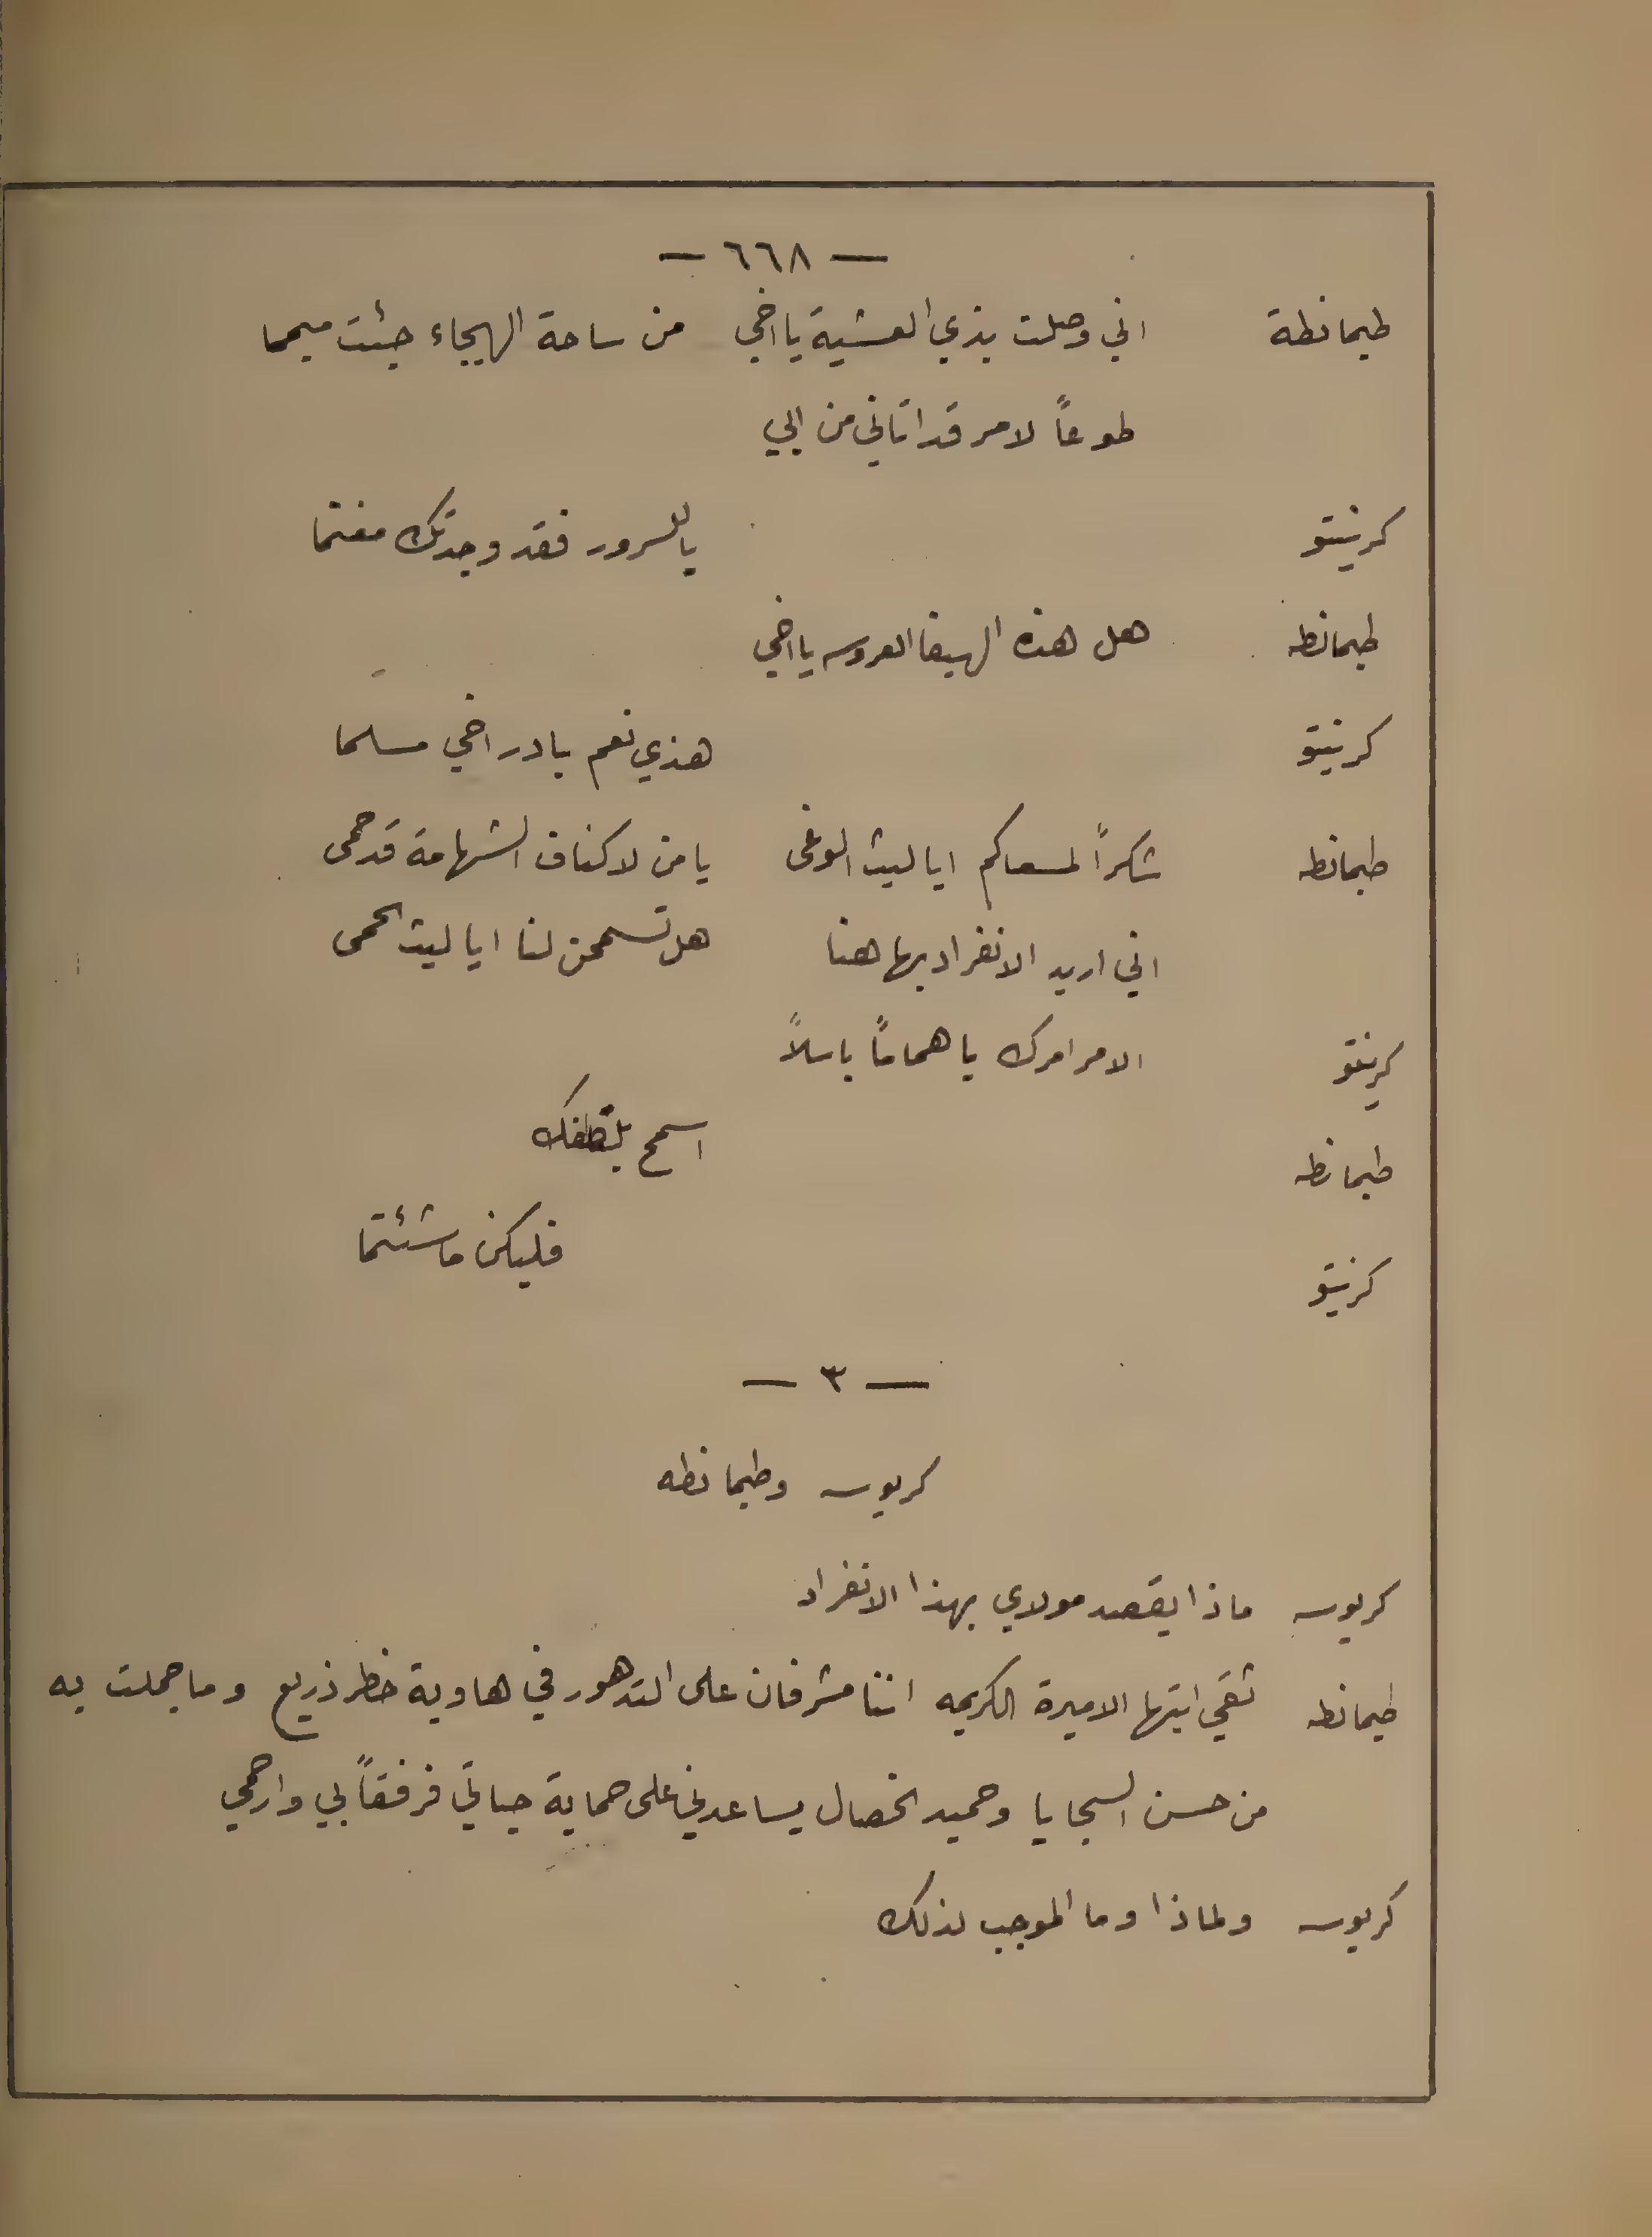 — ٦٦٨ —
طيمانطة اني وصلت بذي العشية يا اخي من ساحة الهيجاء جئت ميمما
طوعاً لامر قد اتاني من ابي
كرنيتو ياللسرور فقد وجدتك مغنما
طيمانطه هل هذه الهيفا العروسه يا اخي
كرنيتو هذي نعم بادر اخي مسلما
طيمانطه شكراً لمسعاكم ايا ليث الوغى يا من لاكناف الشهامة قد حمى
اني اريد الانفراد بها هنا هل تسمحن لنا ايا ليث الحمى
كرينتو الامر امرك يا هماماً باسلاً
طيمانطه اسمح بلطفك
كرنيتو فليكن ما شئتما
— ٣ —
كريوسه وطيمانطه
كريوسه ماذا يقصد مولاي بهذا الانفراد
طيمانطه ثقي ايتها الاميرة الكريمه اننا مشرفان على التدهور في هاوية خطر ذريع وما جملت به
من حسن السجايا وحميد الخصال يساعدني على حماية حياتي فرفقاً بي وارحمي
كريوسه ولماذا وما الموجب لذلك